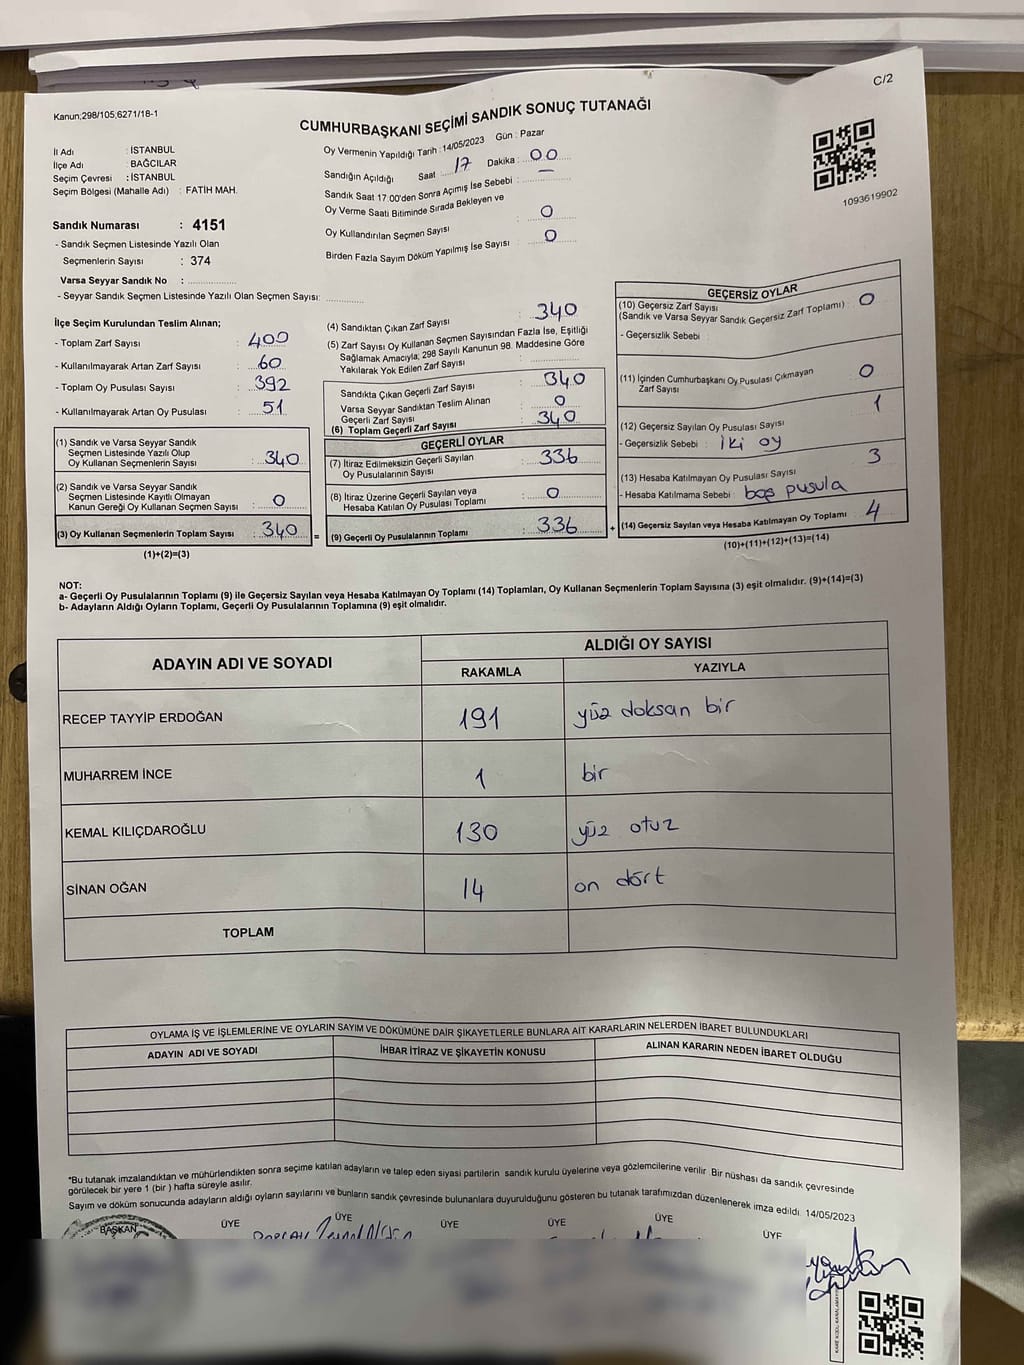 C/2
Kanun;298/105;6271/18-1
CUMHURBAŞKANI SEÇİMİ SANDIK SONUÇ TUTANAĞI
İl Adı : İSTANBUL
İlçe Adı : BAĞCILAR
Seçim Çevresi : İSTANBUL
Seçim Bölgesi (Mahalle Adı) : FATİH MAH.
Oy Vermenin Yapıldığı Tarih : 14/05/2023 Gün : Pazar
Sandığın Açıldığı Saat : 17 Dakika : 00
Sandık Saat 17:00'den Sonra Açımış İse Sebebi : —
Oy Verme Saati Bitiminde Sırada Bekleyen ve
Oy Kullandırılan Seçmen Sayısı : 0
Birden Fazla Sayım Döküm Yapılmış İse Sayısı : 0
1093619902
Sandık Numarası : 4151
- Sandık Seçmen Listesinde Yazılı Olan
Seçmenlerin Sayısı : 374
Varsa Seyyar Sandık No :
- Seyyar Sandık Seçmen Listesinde Yazılı Olan Seçmen Sayısı:
İlçe Seçim Kurulundan Teslim Alınan;
- Toplam Zarf Sayısı : 400
- Kullanılmayarak Artan Zarf Sayısı : 60
- Toplam Oy Pusulası Sayısı : 392
- Kullanılmayarak Artan Oy Pusulası : 51
(1) Sandık ve Varsa Seyyar Sandık
Seçmen Listesinde Yazılı Olup
Oy Kullanan Seçmenlerin Sayısı : 340
(2) Sandık ve Varsa Seyyar Sandık
Seçmen Listesinde Kayıtlı Olmayan
Kanun Gereği Oy Kullanan Seçmen Sayısı : 0
(3) Oy Kullanan Seçmenlerin Toplam Sayısı : 340 =
(1)+(2)=(3)
(4) Sandıktan Çıkan Zarf Sayısı : 340
(5) Zarf Sayısı Oy Kullanan Seçmen Sayısından Fazla İse, Eşitliği
Sağlamak Amacıyla; 298 Sayılı Kanunun 98. Maddesine Göre
Yakılarak Yok Edilen Zarf Sayısı :
Sandıkta Çıkan Geçerli Zarf Sayısı : 340
Varsa Seyyar Sandıktan Teslim Alınan
Geçerli Zarf Sayısı : 0
(6) Toplam Geçerli Zarf Sayısı : 340
GEÇERLİ OYLAR
(7) İtiraz Edilmeksizin Geçerli Sayılan
Oy Pusulalarının Sayısı : 336
(8) İtiraz Üzerine Geçerli Sayılan veya
Hesaba Katılan Oy Pusulası Toplamı : 0
(9) Geçerli Oy Pusulalarının Toplamı : 336 +
GEÇERSİZ OYLAR
(10) Geçersiz Zarf Sayısı
(Sandık ve Varsa Seyyar Sandık Geçersiz Zarf Toplamı) : 0
- Geçersizlik Sebebi :
(11) İçinden Cumhurbaşkanı Oy Pusulası Çıkmayan
Zarf Sayısı : 0
(12) Geçersiz Sayılan Oy Pusulası Sayısı : 1
- Geçersizlik Sebebi : iki oy
(13) Hesaba Katılmayan Oy Pusulası Sayısı : 3
- Hesaba Katılmama Sebebi : boş pusula
(14) Geçersiz Sayılan veya Hesaba Katılmayan Oy Toplamı : 4
(10)+(11)+(12)+(13)=(14)
NOT:
a- Geçerli Oy Pusulalarının Toplamı (9) ile Geçersiz Sayılan veya Hesaba Katılmayan Oy Toplamı (14) Toplamları, Oy Kullanan Seçmenlerin Toplam Sayısına (3) eşit olmalıdır. (9)+(14)=(3)
b- Adayların Aldığı Oyların Toplamı, Geçerli Oy Pusulalarının Toplamına (9) eşit olmalıdır.
ADAYIN ADI VE SOYADI
ALDIĞI OY SAYISI
RAKAMLA YAZIYLA
RECEP TAYYİP ERDOĞAN 191 yüz doksan bir
MUHARREM İNCE 1 bir
KEMAL KILIÇDAROĞLU 130 yüz otuz
SİNAN OĞAN 14 on dört
TOPLAM
OYLAMA İŞ VE İŞLEMLERİNE VE OYLARIN SAYIM VE DÖKÜMÜNE DAİR ŞİKAYETLERLE BUNLARA AİT KARARLARIN NELERDEN İBARET BULUNDUKLARI
ADAYIN ADI VE SOYADI İHBAR İTİRAZ VE ŞİKAYETİN KONUSU ALINAN KARARIN NEDEN İBARET OLDUĞU
*Bu tutanak imzalandıktan ve mühürlendikten sonra seçime katılan adayların ve talep eden siyasi partilerin sandık kurulu üyelerine veya gözlemcilerine verilir. Bir nüshası da sandık çevresinde
görülecek bir yere 1 (bir) hafta süreyle asılır.
Sayım ve döküm sonucunda adayların aldığı oyların sayılarını ve bunların sandık çevresinde bulunanlara duyurulduğunu gösteren bu tutanak tarafımızdan düzenlenerek imza edildi. 14/05/2023
BAŞKAN ÜYE ÜYE ÜYE ÜYE ÜYE ÜYE